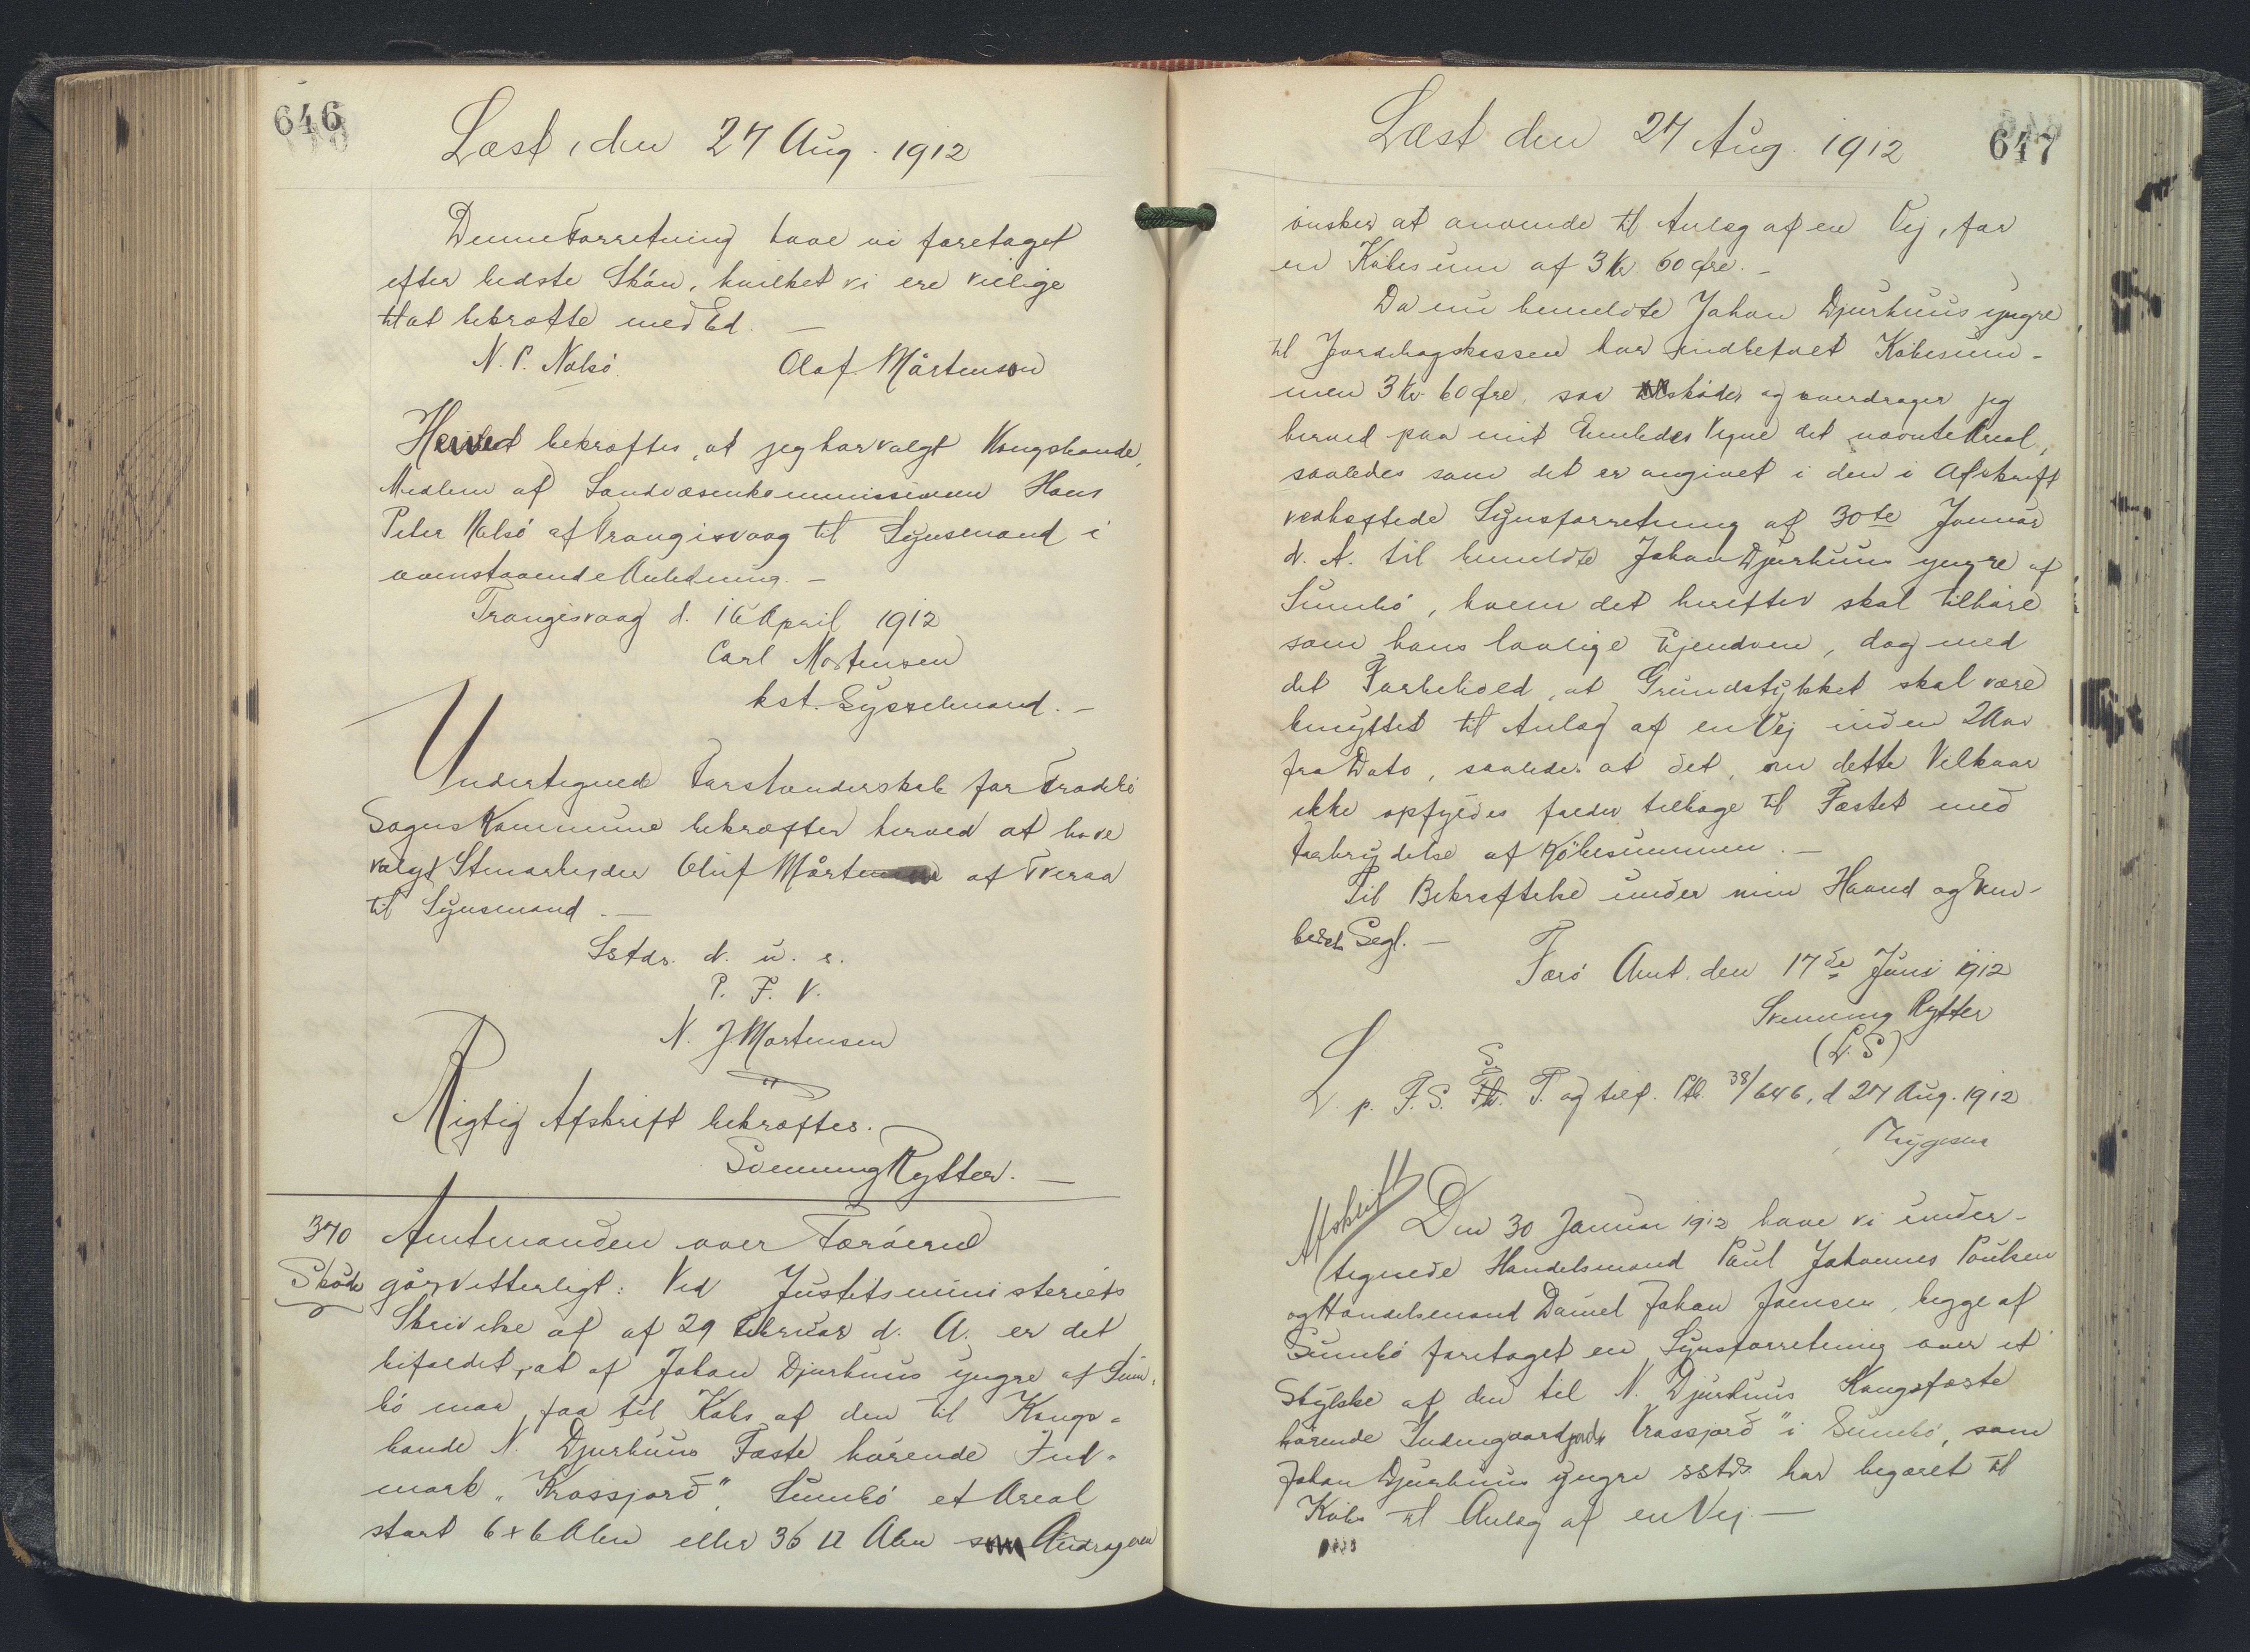 646
Læst, den 27 Aug. 1912
Denne Forretning have vi foretaget
efter bedste Skøn, hvilket vi ere villige
til at bekræfte med Ed. —
N. P. Nolsø. Olaf Mårtenson
Herved bekræftes, at jeg har valgt Kongsbonde,
Medlem af Landvæsenskommissionen Hans
Peter Nolsø af Trangisvaag til Synsmand i
ovenstaaende Anledning. —
Trangisvaag d. 16 April 1912
Carl Mortensen
kst. Sysselmand. —
Undertegnede Forstanderskab for Frodebø
Sogns Kommune bekræfter herved at have
valgt Stenarbejder Oluf Mårtensen af Tveraa
til Synsmand. —
Sstds. d. u. s.
P. F. V.
N. J. Mortensen
Rigtig Afskrift bekræftes.
Svenning Rytter. —
370 Amtmanden over Færøerne
Skøde gør vitterligt: Ved Justitsministeriets
Skrivelse af af 29 Februar d. A. er det
bifaldet, at af Johan Djurhuus yngre af Sum-
bø maa faa til Købs af den til Kongs-
bonde N. Djurhuus Fæste hørende Ind-
mark "Krossjord", Sumbø et Areal
stort 6 x 6 Alen eller 36 □ Alen som Andrageren
647
Læst den 27 Aug. 1912
ønsker at anvende til Anlæg af en Vej, for
en Købesum af 3 Kr 60 Øre. —
Da nu bemeldte Johan Djurhuus yngre
til Jordebogskassen har indbetalt Købesum-
men 3 Kr 60 Øre, saa skøder og overdrager jeg
herved paa mit Embedes Vegne det nævnte Areal,
saaledes som det er angivet i den i Afskrift
vedhæftede Synsforretning af 30te Januar
d. A. til bemeldte Johan Djurhuus yngre af
Sumbø, hvem det herefter skal tilhøre
som hans lovlige Ejendom, dog med
det Forbehold, at Grundstykket skal være
benyttet til Anlæg af en Vej inden 2 Aar
fra Dato, saaledes at det, om dette Vilkaar
ikke opfyldes falder tilbage til Fæstet med
Forbrydelse af Købesummen. —
Til Bekræftelse under min Haand og Em-
beds Segl. —
Færø Amt, den 17de Juni 1912
Svenning Rytter
(L.S)
L. p. F. S. S T. og tilf. Ptk. 38/646, d 27 Aug. 1912
Afskrift
Den 30 Januar 1912 have vi under-
tegnede Handelsmand Paul Johannes Poulsen
og Handelsmand Daniel Johan Joensen, begge af
Sumbø foretaget en Synsforretning over et
Stykke af den til N. Djurhuus Kongsfæste
hørende Indengaardsjord "Krossjord" i Sumbø, som
Johan Djurhuus yngre sstds. har begæret til
Købs til Anlæg af en Vej. —